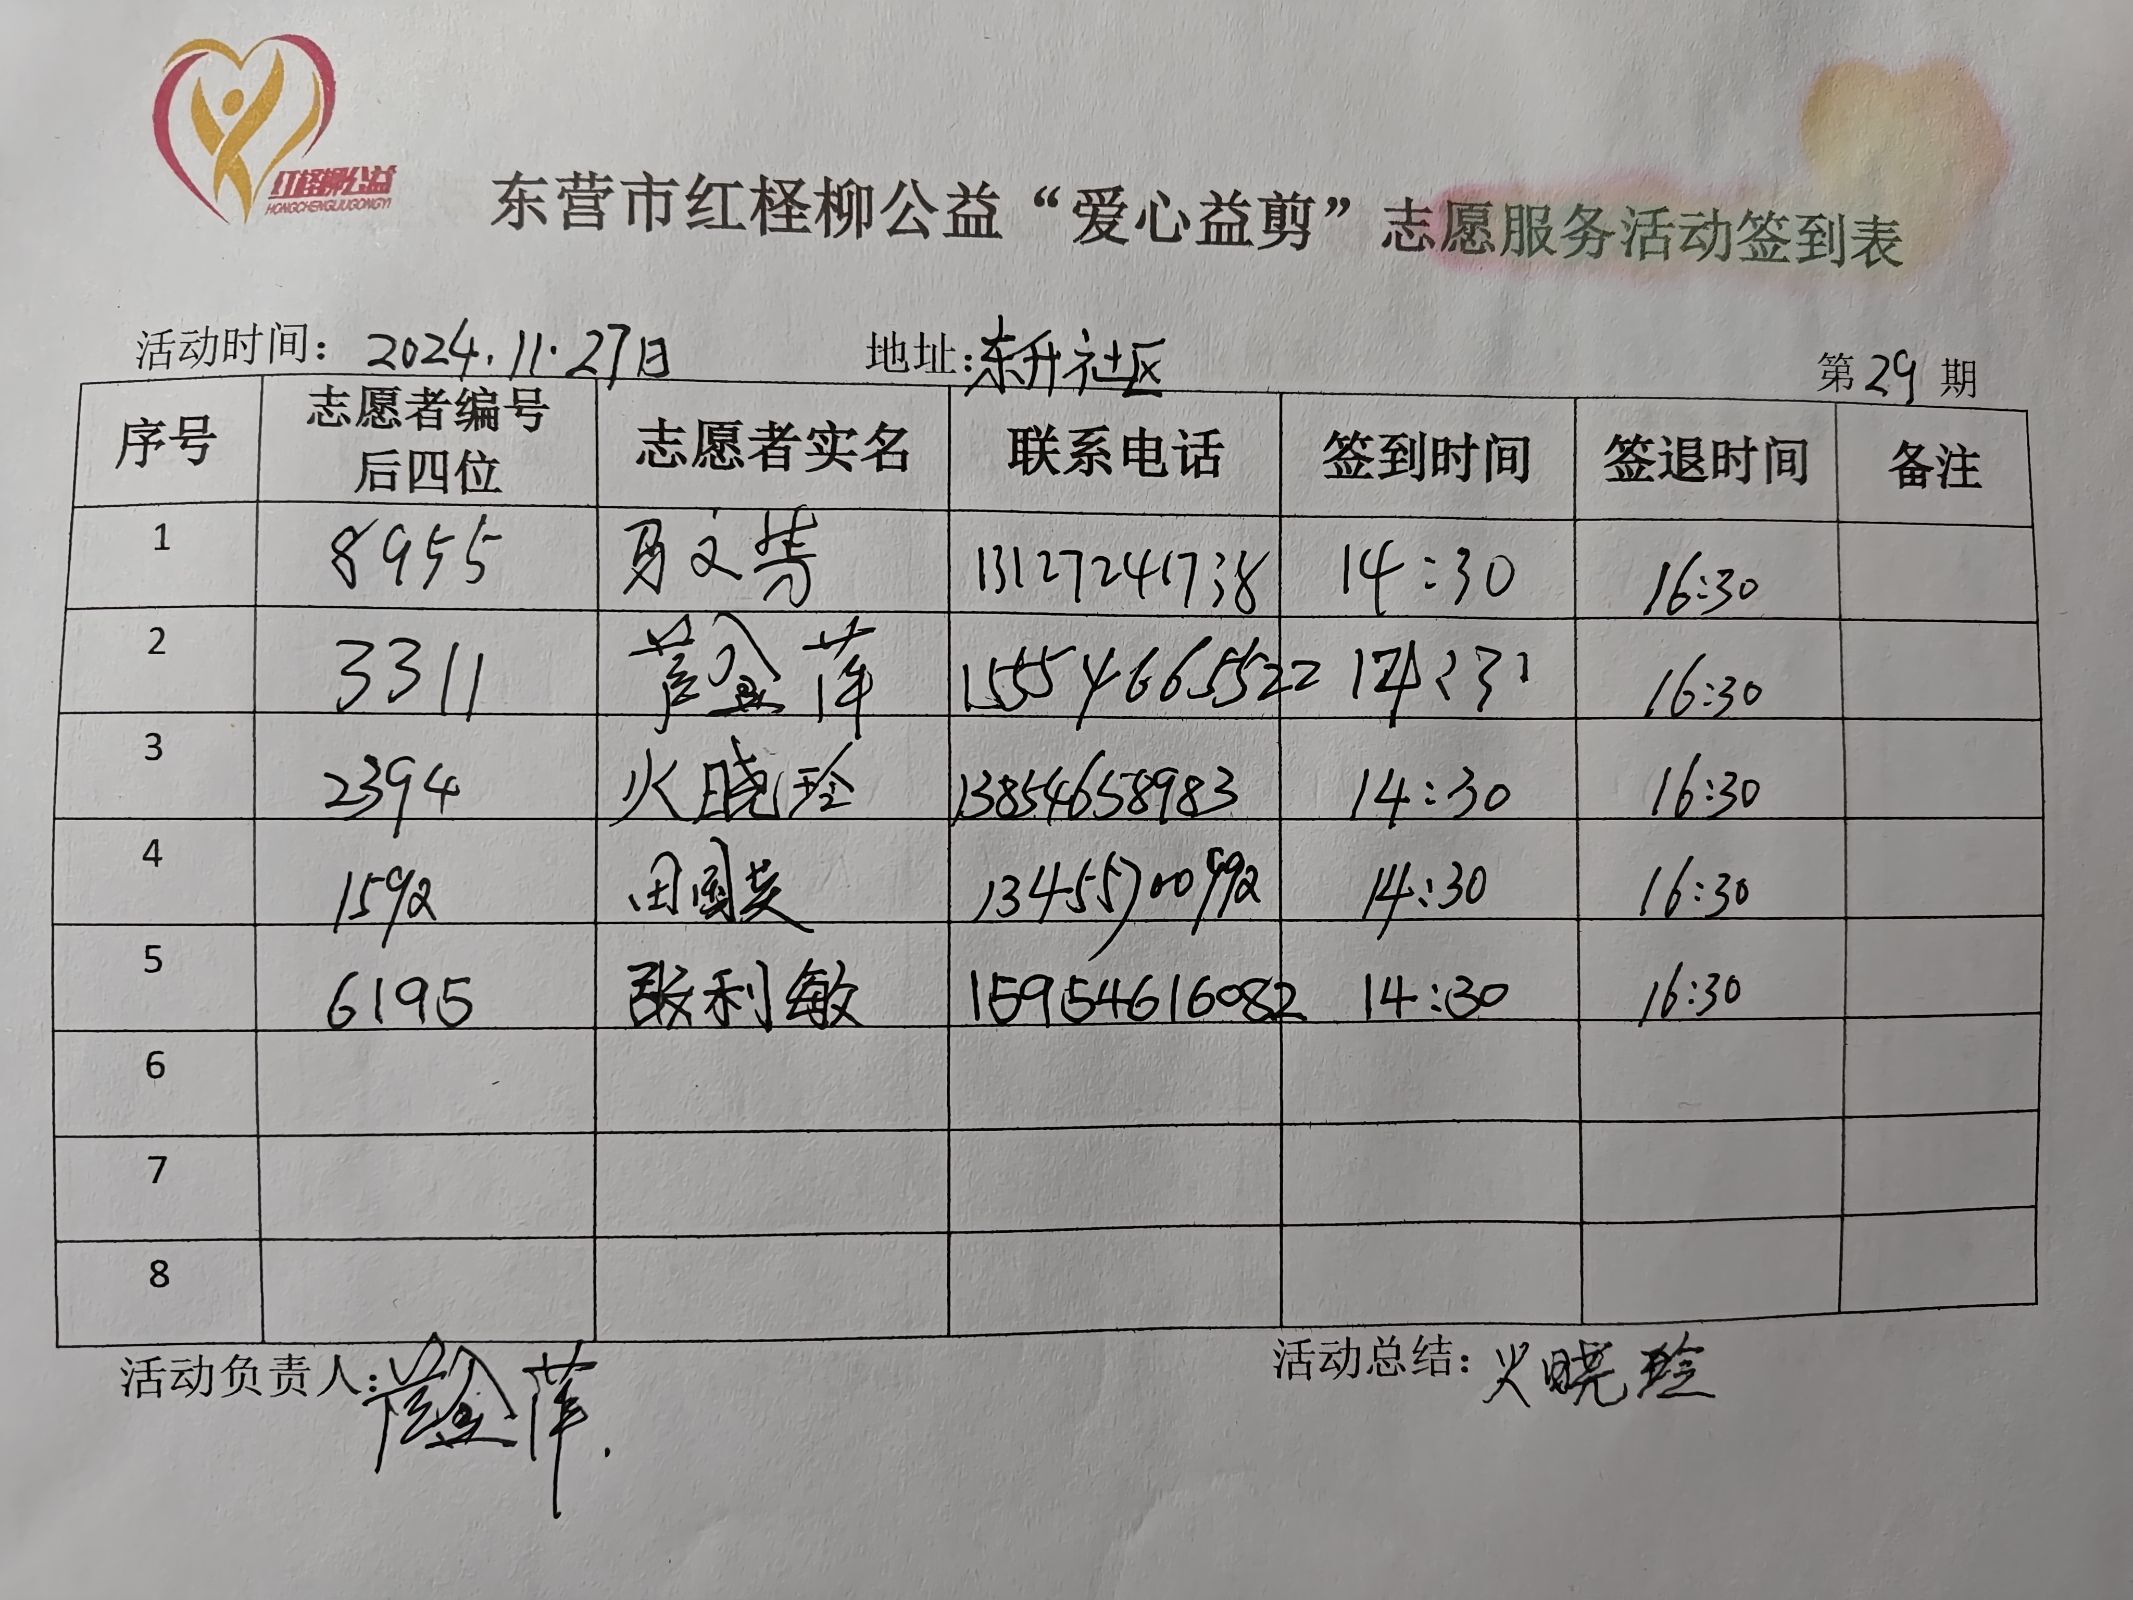 红柽柳公益
HONGCHENGLIUGONGYI
东营市红柽柳公益“爱心益剪”志愿服务活动签到表
活动时间：2024.11.27日 地址：东升社区 第29期
序号 志愿者编号后四位 志愿者实名 联系电话 签到时间 签退时间 备注
1 8955 文芳 13127241738 14:30 16:30
2 3311 萍 15554665522 16:30
3 2394 火晓玲 13854658983 14:30 16:30
4 1592 田国英 13455700992 14:30 16:30
5 6195 利敏 15954616082 14:30 16:30
6
7
8
活动负责人： 萍. 活动总结：火晓玲